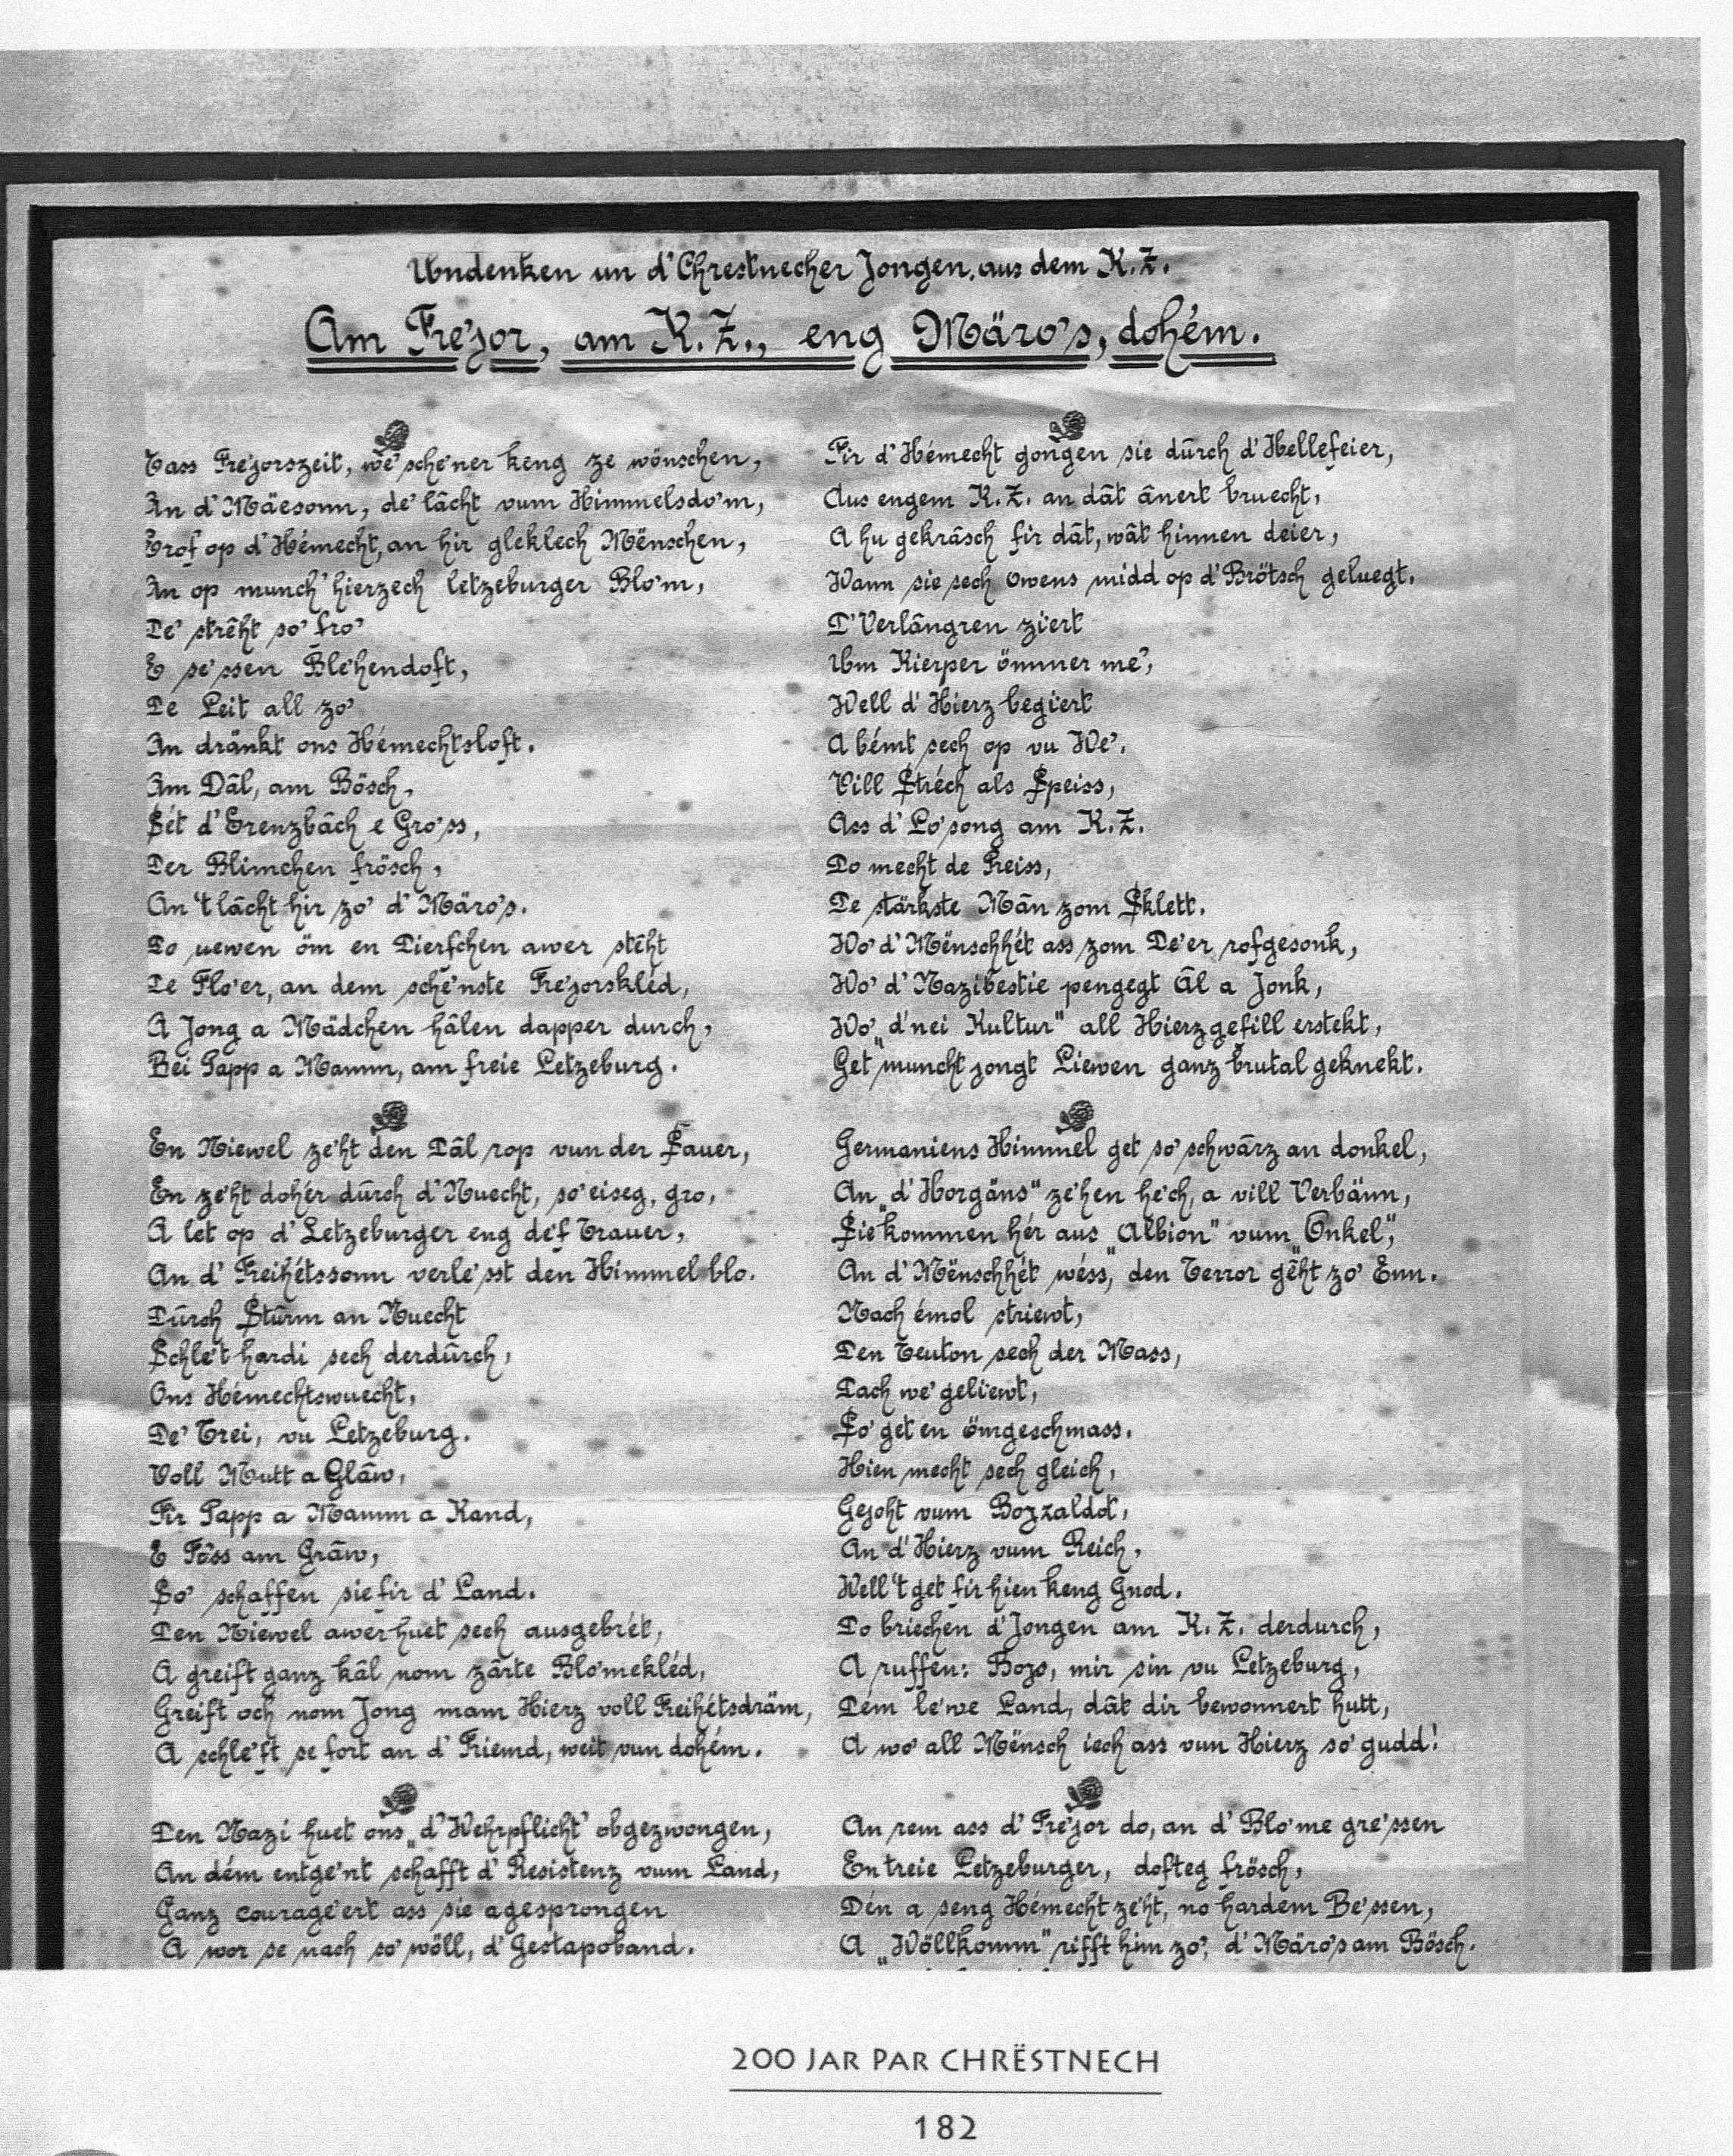 Undenken un d'Chrestnecher Jongen, aus dem K.Z.
Am Fre'jor, am K.Z., eng Märo's, dohém.
Tass Fre'jorszeit, we' sche'ner keng ze wönschen,
An d'Mäesonn, de' lächt vum Himmelsdo'm,
Erof op d'Hémecht, an hir gleklech Mënschen,
An op munch' hierzech letzeburger Blo'm,
De' strêht so' fro'
E se'ssen Ble'hendoft,
De Leit all zo'
An dränkt ons Hémechtsloft.
Am Dâl, am Bösch,
Sét d'Erenzbâch e Gro'ss,
Der Blimchen frösch,
An 't lächt hir zo' d'Märo's.
Do uewen öm en Dierfchen awer stêht
De Flo'er, an dem sche'nste Fre'jorskléd,
A Jong a Mädchen hâlen dapper durch,
Bei Papp a Mamm, am freie Letzeburg.
En Niewel ze'ht den Dâl rop vun der Sauer,
En ze'ht dohér dûrch d'Nuecht, so' eiseg, gro,
A let op d'Letzeburger eng de'f Trauer,
An d'Freihétssonn verle'sst den Himmel blo.
Dûrch Stûrm an Nuecht
Schle't hardi sech derdûrch,
Ons Hémechtswuecht,
De' Trei, vu Letzeburg.
Voll Mutt a Glâw,
Fir Papp a Mamm a Kand,
E Fo'ss am Grâw,
So' schaffen sie fir d'Land.
Den Niewel awer huet sech ausgebrét,
A greift ganz kâl nom zârte Blo'mekléd,
Greift och nom Jong mam Hierz voll Freihétsdräm,
A schle'ft se fort an d'Friemd, weit vun dohém.
Den Nazi huet ons „d'Wehrpflicht" obgezwongen,
An dém entge'nt schafft d'Resistenz vum Land,
Ganz courage'ert ass sie agesprongen
A wor se nach so' wöll, d'Gestapoband.
Fir d'Hémecht gongen sie dûrch d'Hellefeier,
Aus engem K.Z. an dât ânert bruecht,
A hu gekrâsch fir dât, wât hinnen deier,
Wann sie sech owens midd op d'Brötsch geluegt.
D'Verlângren ziert
Um Kierper ömmer me',
Well d'Hierz begiert
A bémt sech op vu We'.
Vill Stréch als Speiss,
Ass d'Lo'song am K.Z.
Do mecht de Preiss,
De stärkste Mân zom Sklett.
Wo' d'Mënschhét ass zom De'er rofgesonk,
Wo' d'Nazibestie pengegt Âl a Jonk,
Wo' „d'nei Kultur" all Hierzgefill erstekt,
Get muncht jongt Liewen ganz brutal geknekt.
Germaniens Himmel get so' schwârz an donkel,
An „d'Horgäns" ze'hen he'ch, a vill Verbänn,
Sie „kommen hér aus Albion" vum „Onkel",
An d'Mënschhét wéss, den Terror gêht zo' Enn.
Nach émol striewt,
Den Teuton sech der Mass,
Dach we' geliewt,
So' get en ömgeschmass.
Hien mecht sech gleich,
Gejoht vum Bozzaldot,
An d'Hierz vum Reich,
Well 't get fir hien keng Gnod.
Do briechen d'Jongen am K.Z. derdurch,
A ruffen: Bozo, mir sin vu Letzeburg,
Dém le'we Land, dât dir bewonnert hutt,
A wo' all Mënsch iech ass vun Hierz so' gudd!
An rem ass d'Fre'jor do, an d'Blo'me gre'ssen
En treie Letzeburger, dofteg frösch,
Dén a seng Hémecht ze'ht, no hardem Be'ssen,
A „Wöllkomm" rifft him zo', d'Märo's am Bösch.
200 JAR PAR CHRËSTNECH
182